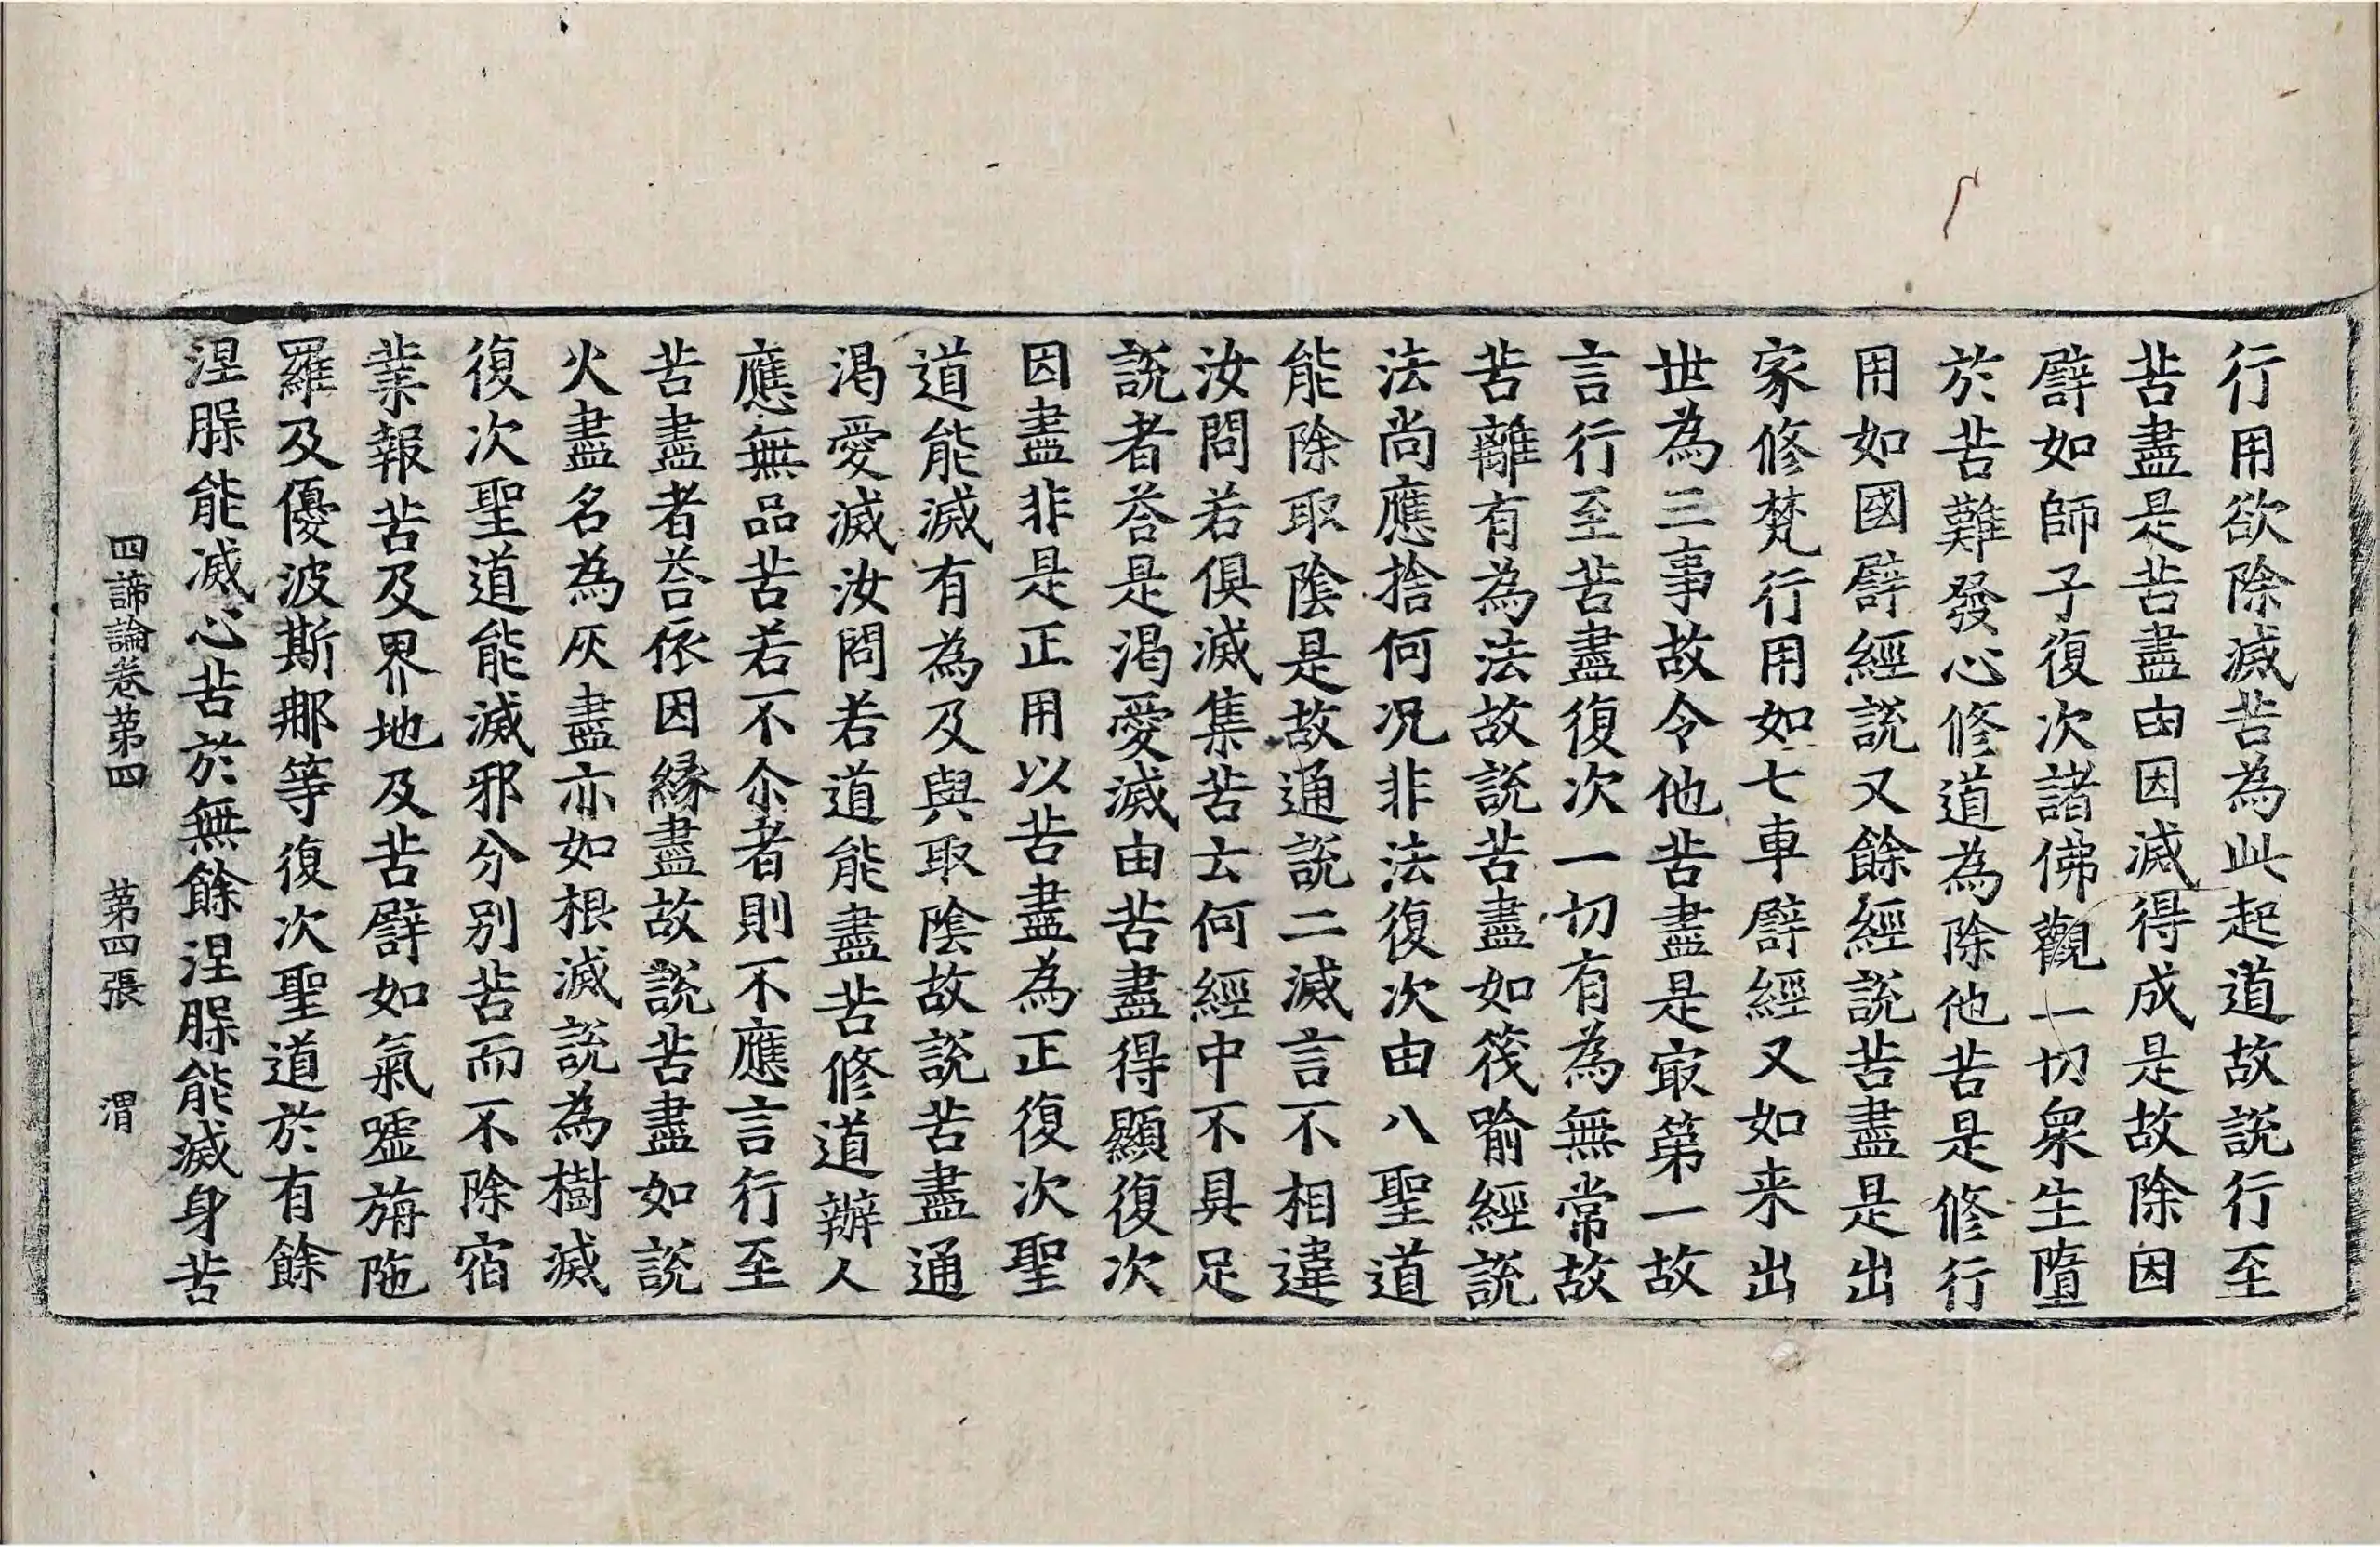 行用欲除滅苦為此起道故說行至
苦盡是苦盡由因滅得成是故除因
譬如師子復次諸佛觀一切衆生墮
於苦難發心修道為除他苦是修行
用如國譬經說又餘經說苦盡是出
家修梵行用如七車譬經又如来出
世為三事故令他苦盡是㝡第一故
言行至苦盡復次一切有為無常故
苦離有為法故說苦盡如筏喻經說
法尚應捨何况非法復次由八聖道
能除取陰是故通說二滅言不相違
汝問若俱滅集苦云何經中不具足
說者荅是渴愛滅由苦盡得顯復次
因盡非是正用以苦盡為正復次聖
道能滅有為及與取陰故說苦盡通
渴愛滅汝問若道能盡苦修道辦人
應無品苦若不尒者則不應言行至
苦盡者荅依因緣盡故說苦盡如說
火盡名為灰盡亦如根滅說為樹滅
復次聖道能滅邪分別苦而不除宿
業報苦及界地及苦譬如氣噓旃陁
羅及優波斯那等復次聖道於有餘
涅脲能滅心苦於無餘涅脲能滅身苦
四諦論卷第四 第四張 渭